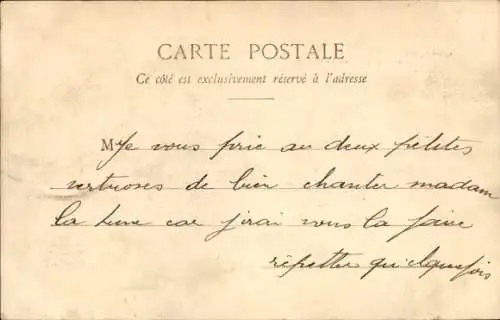 CARTE POSTALE
Ce côté est exclusivement réservé à l'adresse
M Je vous prie au deux petites
vertuoses de bien chanter madam
la lune car j'irai vous la faire
répetter quelquefois